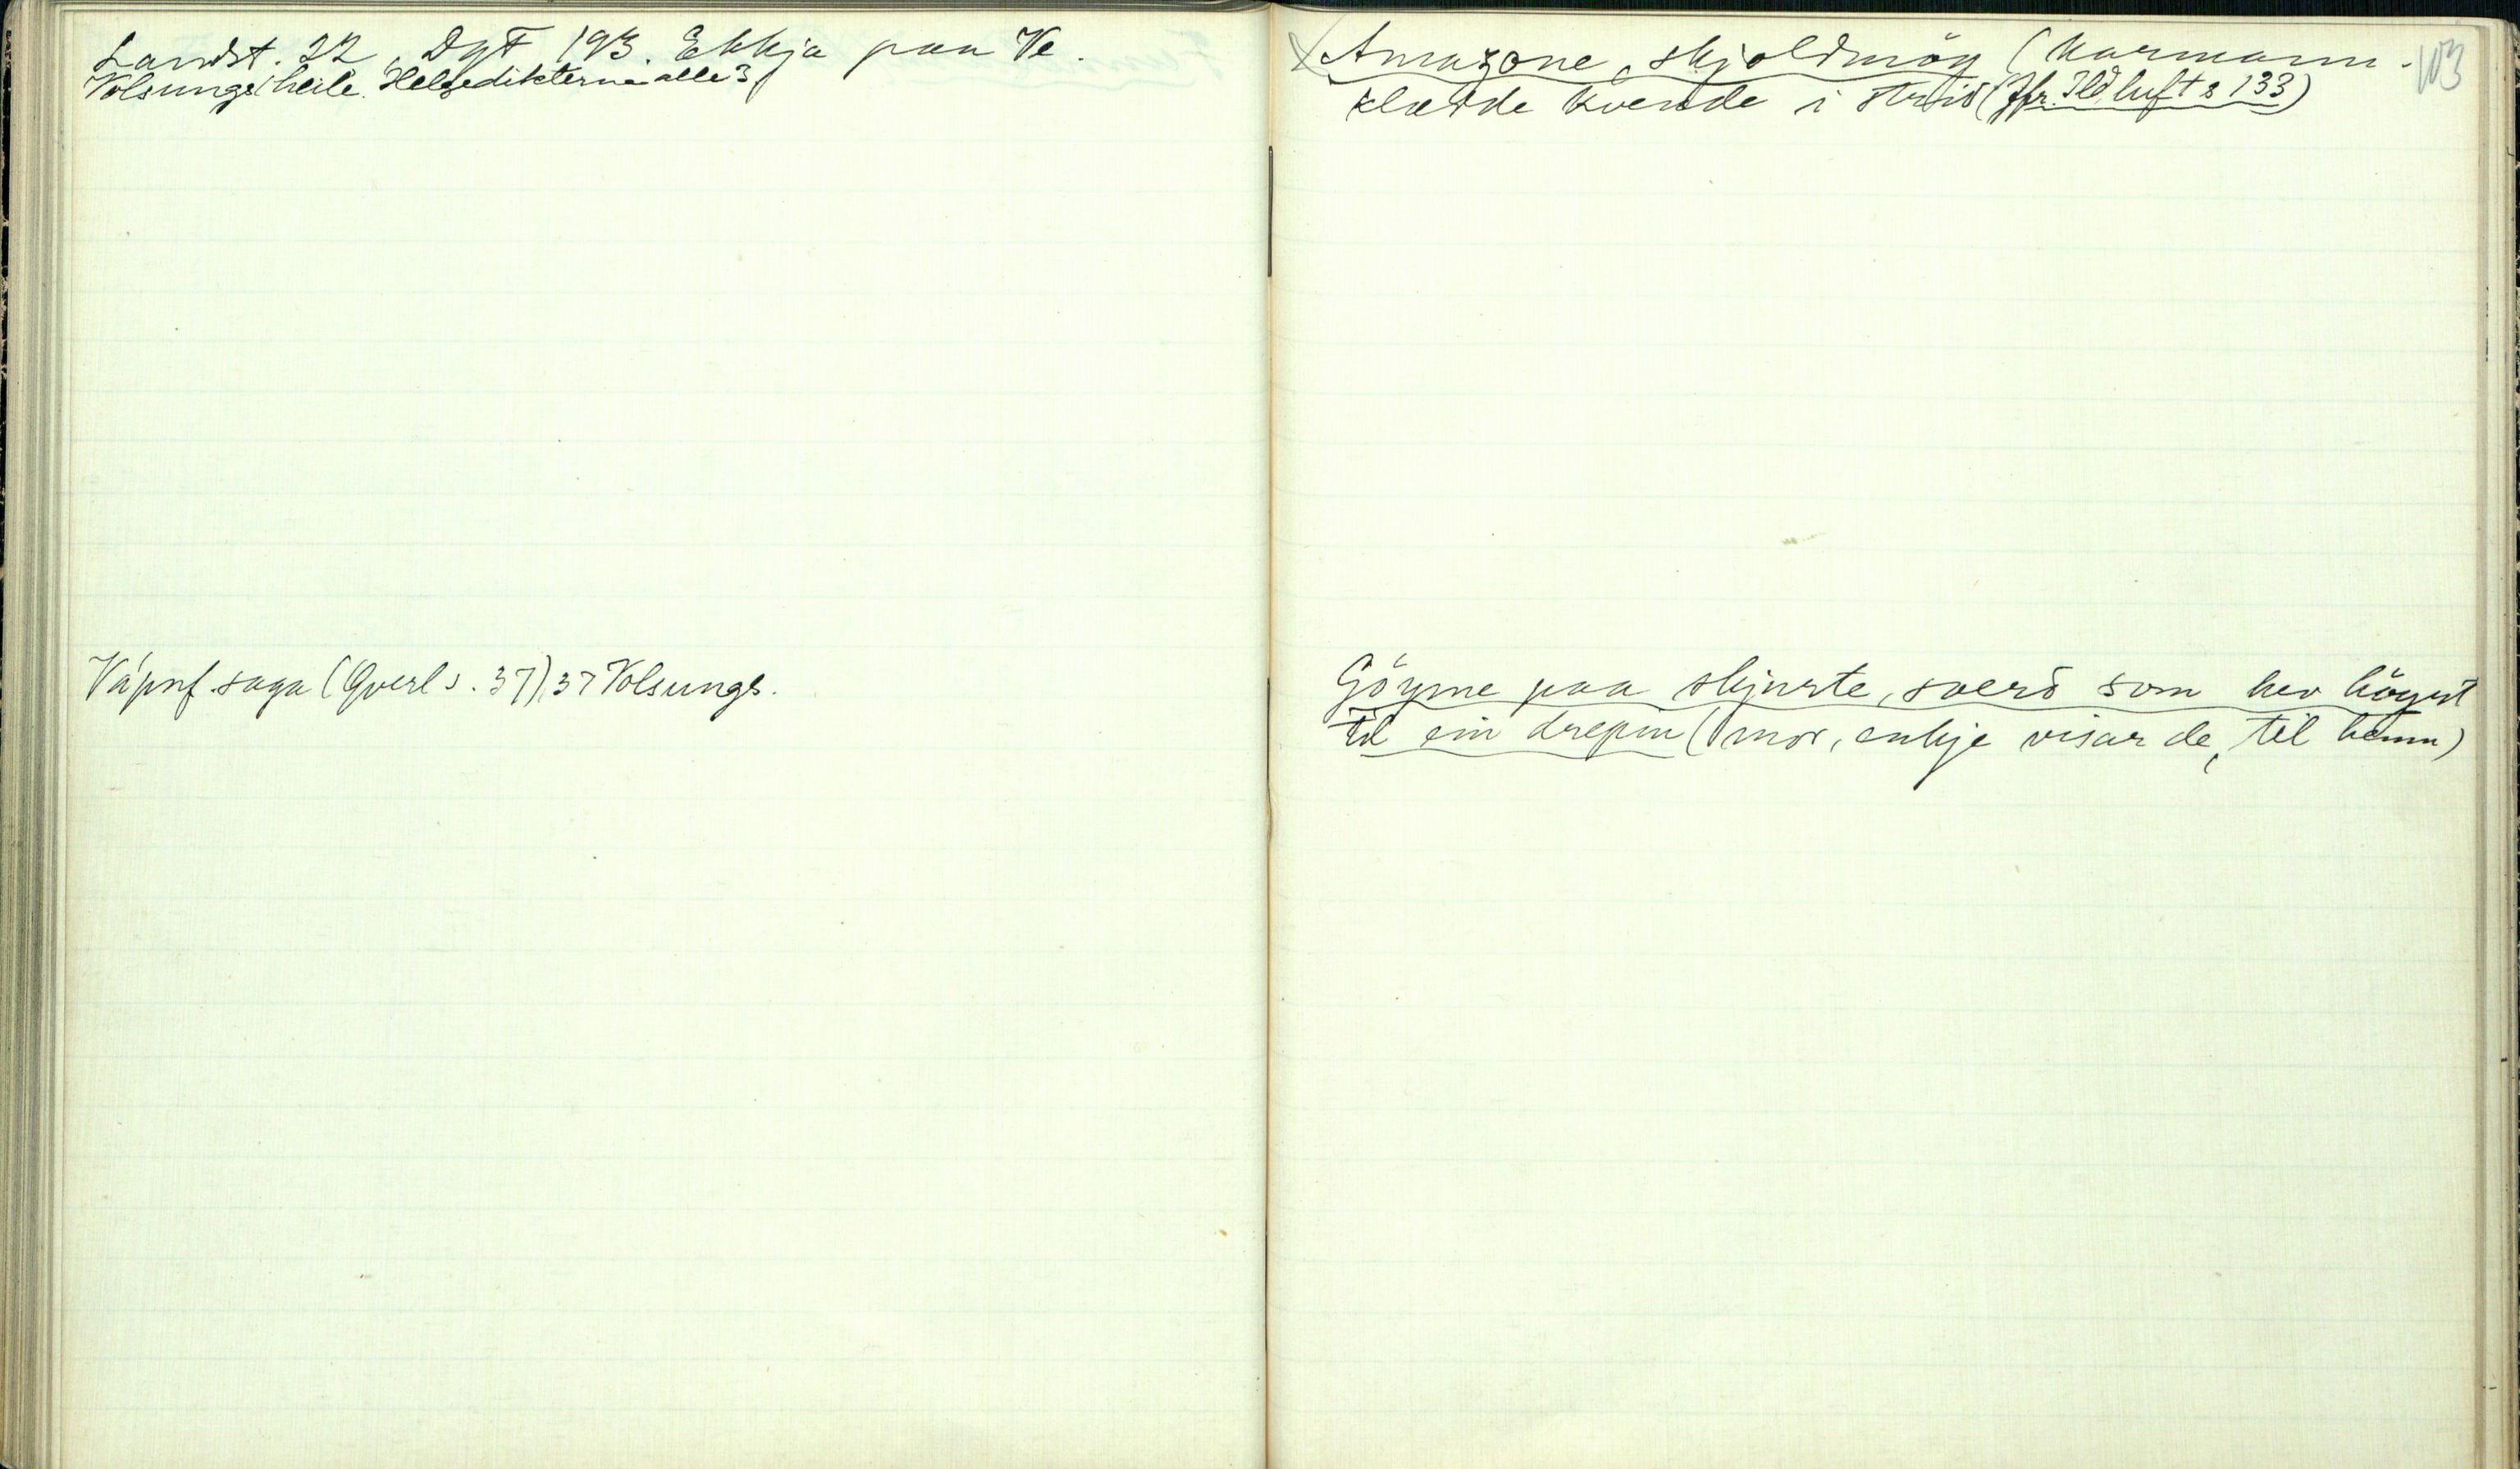 Landst. 22, DgF 193. Ekkja paa Ve.
Volsungs. heile. Helgedikterne alle 3
Vápnf. saga (Qverl s. 37), 37 Volsungs.
Amazone, skjoldmöy (karmann-
klædde kvende i strid (Jfr. Ild, luft s 133)
103
Göyme paa skjurte, sverd som hev höyrt
til ein drepin (mor, enkje visar de, til henn)